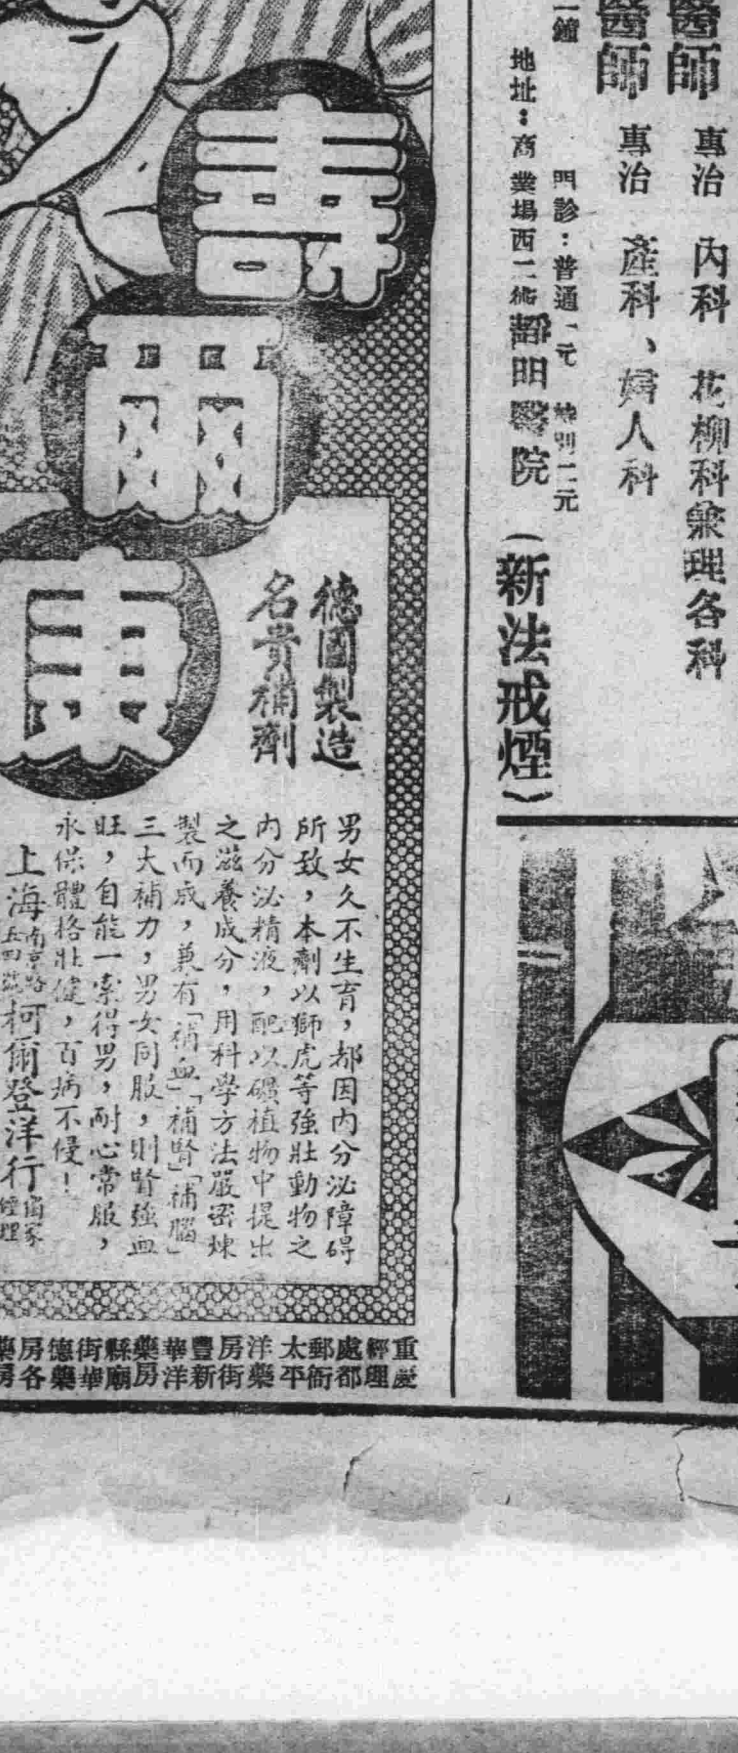 醫師 專治 內科 花柳科兼理各科
醫師 專治 產科、婦人科
門診：普通一元 特別二元
地址：商業場西二街 醫院
(新法戒煙)
壽爾康
德國製造
名貴補劑
男女久不生育，都因內分泌障碍
所致，本劑以獅虎等強壯動物之
內分泌精液，配以礦植物中提出
之滋養成分，用科學方法嚴密煉
製而成，兼有「補血」「補腎」「補腦」
三大補力，男女同服，則腎強血
旺，自能一索得男，耐心常服，
永保體格壯健，百病不侵！
上海南京路 柯爾登洋行獨家經理
重慶
經理
處都
郵街
太平
洋藥
房街
豐新
華洋
藥房
縣廟
街華
德藥
房各
藥房